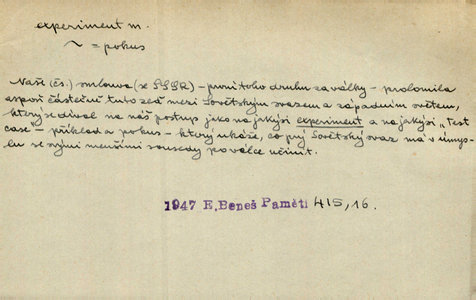 experiment m.
~ = pokus
Naše (čs.) smlouva (se SSSR) – první toho druhu za války – prolomila
aspoň částečně tuto zeď mezi Sovětským svazem a západním světem,
který se díval na náš postup jako na jakýsi experiment a na jakýsi „test
case – příklad a pokus – který ukáže, co prý Sovětský svaz má v úmys-
lu se svými menšími sousedy po válce učinit.
1947 E. Beneš Paměti 415, 16.